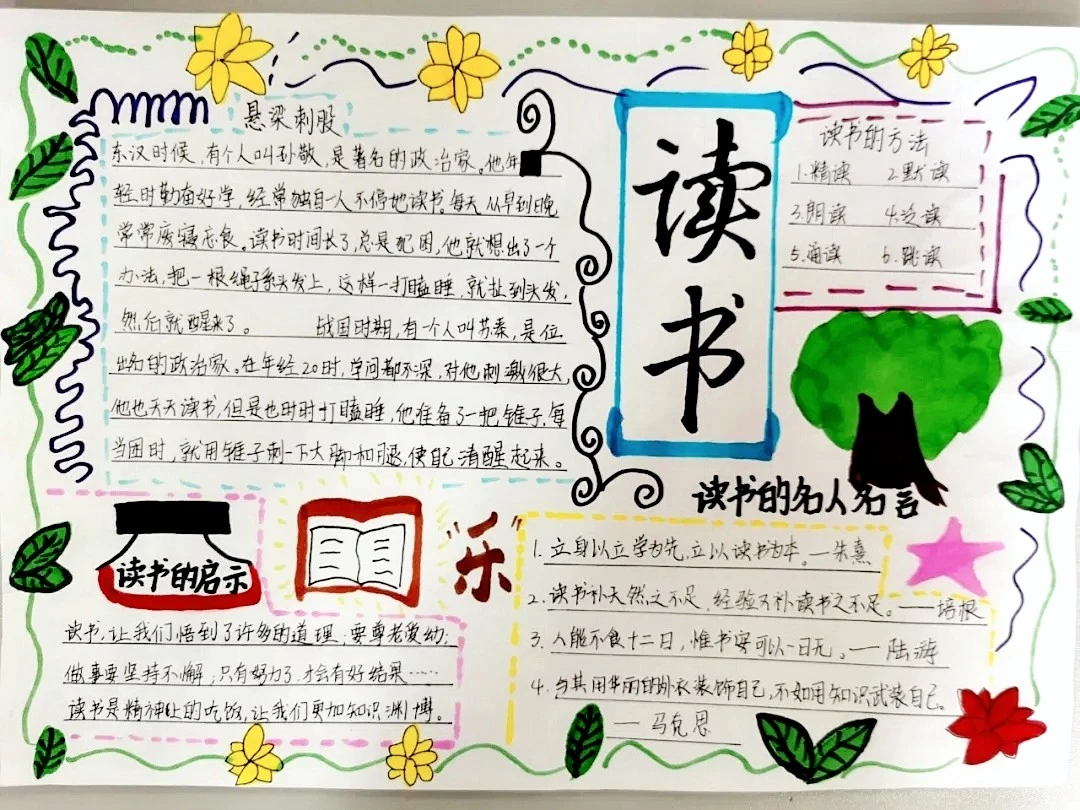 悬梁刺股
东汉时候,有个人叫孙敬,是著名的政治家。他年
轻时勤奋好学,经常独自一人不停地读书。每天从早到晚
常常废寝忘食。读书时间长了,总是犯困,他就想出了一个
办法,把一根绳子系头发上,这样一打瞌睡,就扯到头发,
然后就醒来了。 战国时期,有一个人叫苏秦,是位
出名的政治家。在年经20时,学问都不深,对他刺激很大,
他也天天读书,但是也时时打瞌睡,他准备了一把锥子,每
当困时,就用锥子刺一下大脚和腿,使自己清醒起来。
读书
读书的方法
1.精读 2.默读
3.朗读 4.泛读
5.诵读 6.跳读
读书的启示
读书,让我们悟到了许多的道理:要尊老爱幼;
做事要坚持不懈;只有努力了,才会有好结果……
读书是精神上的吃饭,让我们更加知识渊博。
"乐"
读书的名人名言
1.立身以立学为先,立以读书为本。—朱熹
2.读书补天然之不足,经验又补读书之不足。——培根
3.人能不食十二日,惟书安可以一日无。—陆游
4.与其用华丽的外衣装饰自己,不如用知识武装自己。
—马克思